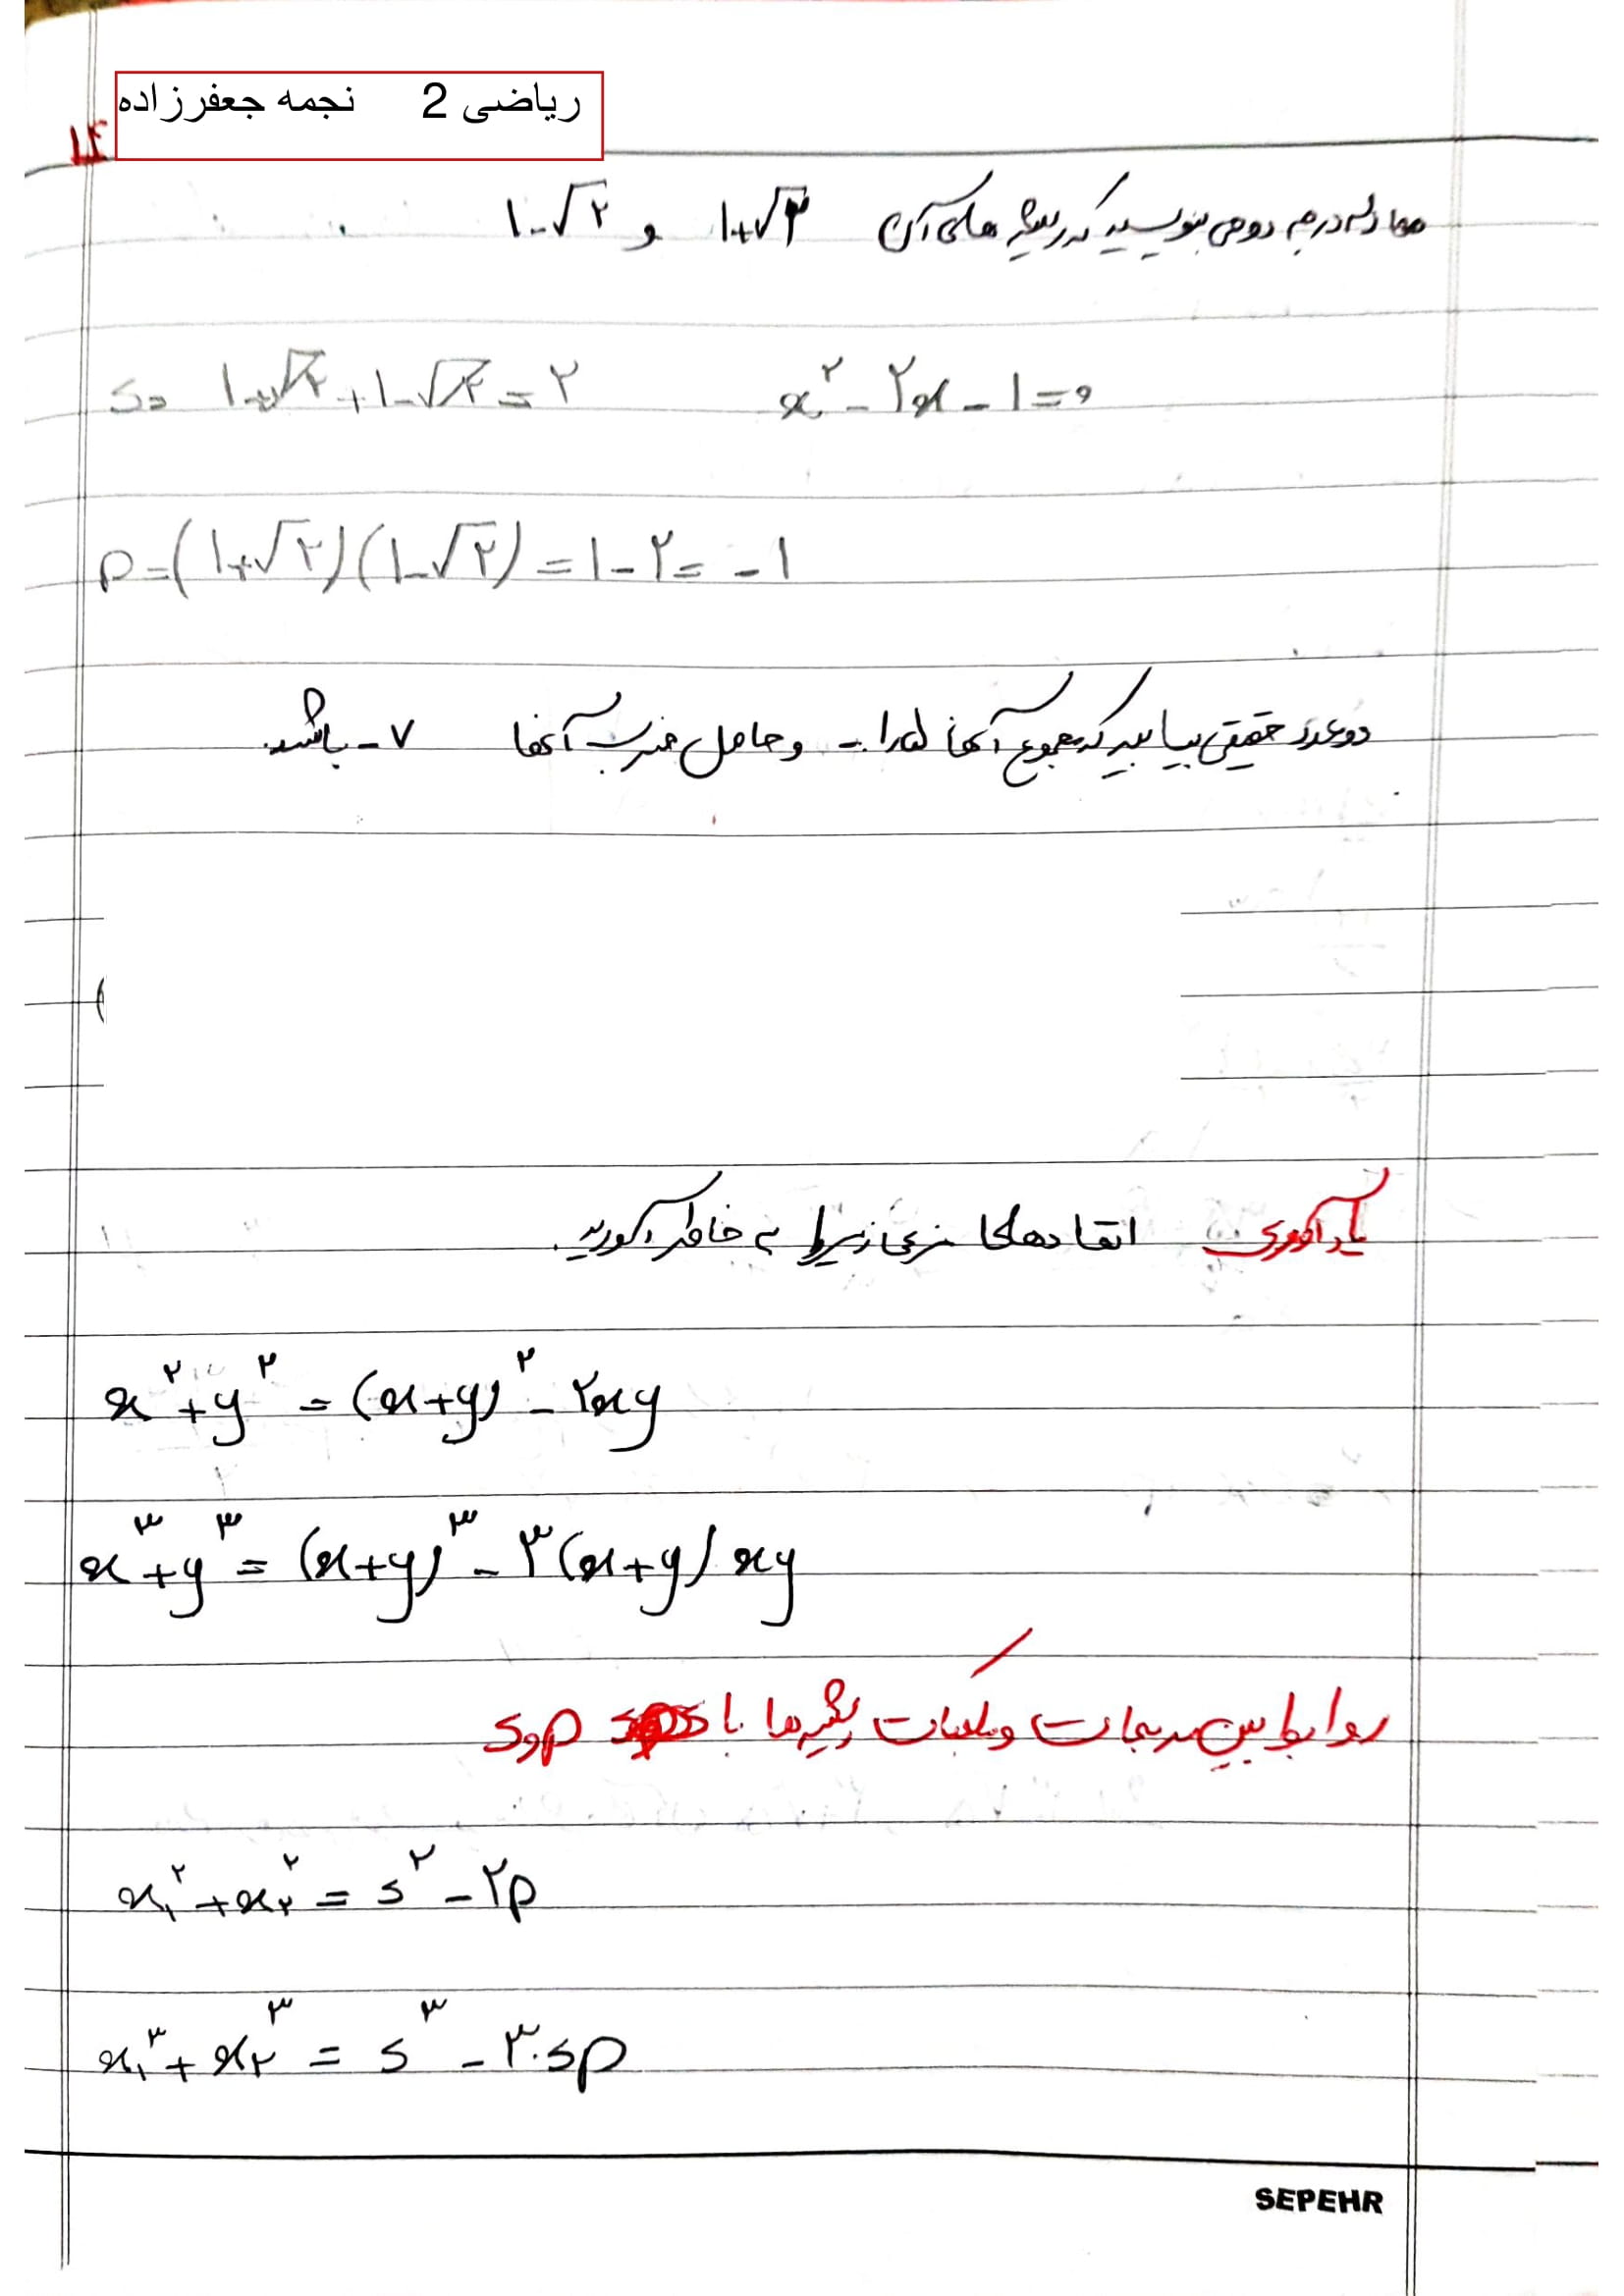 ریاضی 2 نجمه جعفرزاده
۱۴
معادله درجه دومی بنویسید که ریشه های آن ۱+√۲ و ۱-√۲
s= ۱+√۲+۱-√۲=۲ x²-۲x-۱=۰
p=(۱+√۲)(۱-√۲)=۱-۲=-۱
دو عدد حقیقی بیابید که مجموع آنها و حاصل ضرب آنها ۷- باشد.
یادآوری اتحادهای فرعی زیر را به خاطر آورید.
x²+y²=(x+y)²-۲xy
x³+y³=(x+y)³-۳(x+y)xy
روابط بین مربعات و مکعبات ریشه ها با s و p
x₁²+x₂²=s²-۲p
x₁³+x₂³=s³-۳.sp
SEPEHR